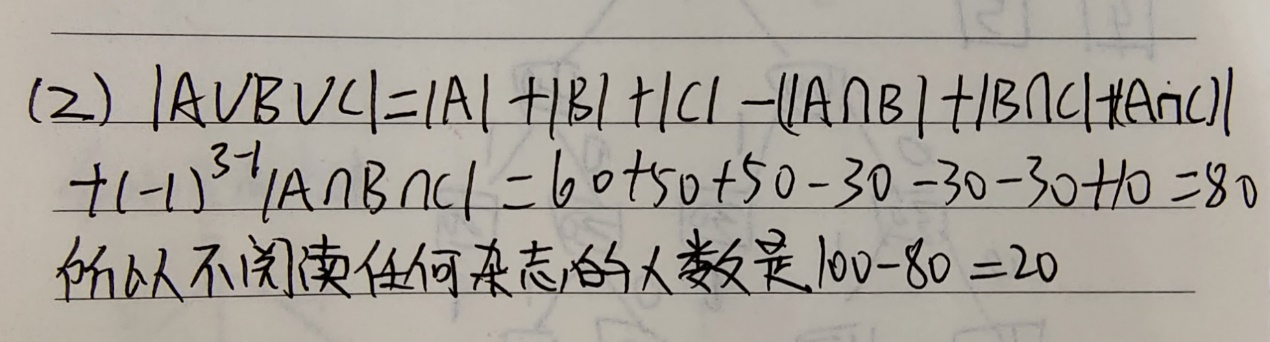 (2) |A∪B∪C|=|A|+|B|+|C|-(|A∩B|+|B∩C|+|A∩C|)
+(-1)³⁻¹|A∩B∩C|=60+50+50-30-30-30+10=80
所以不阅读任何杂志的人数是100-80=20